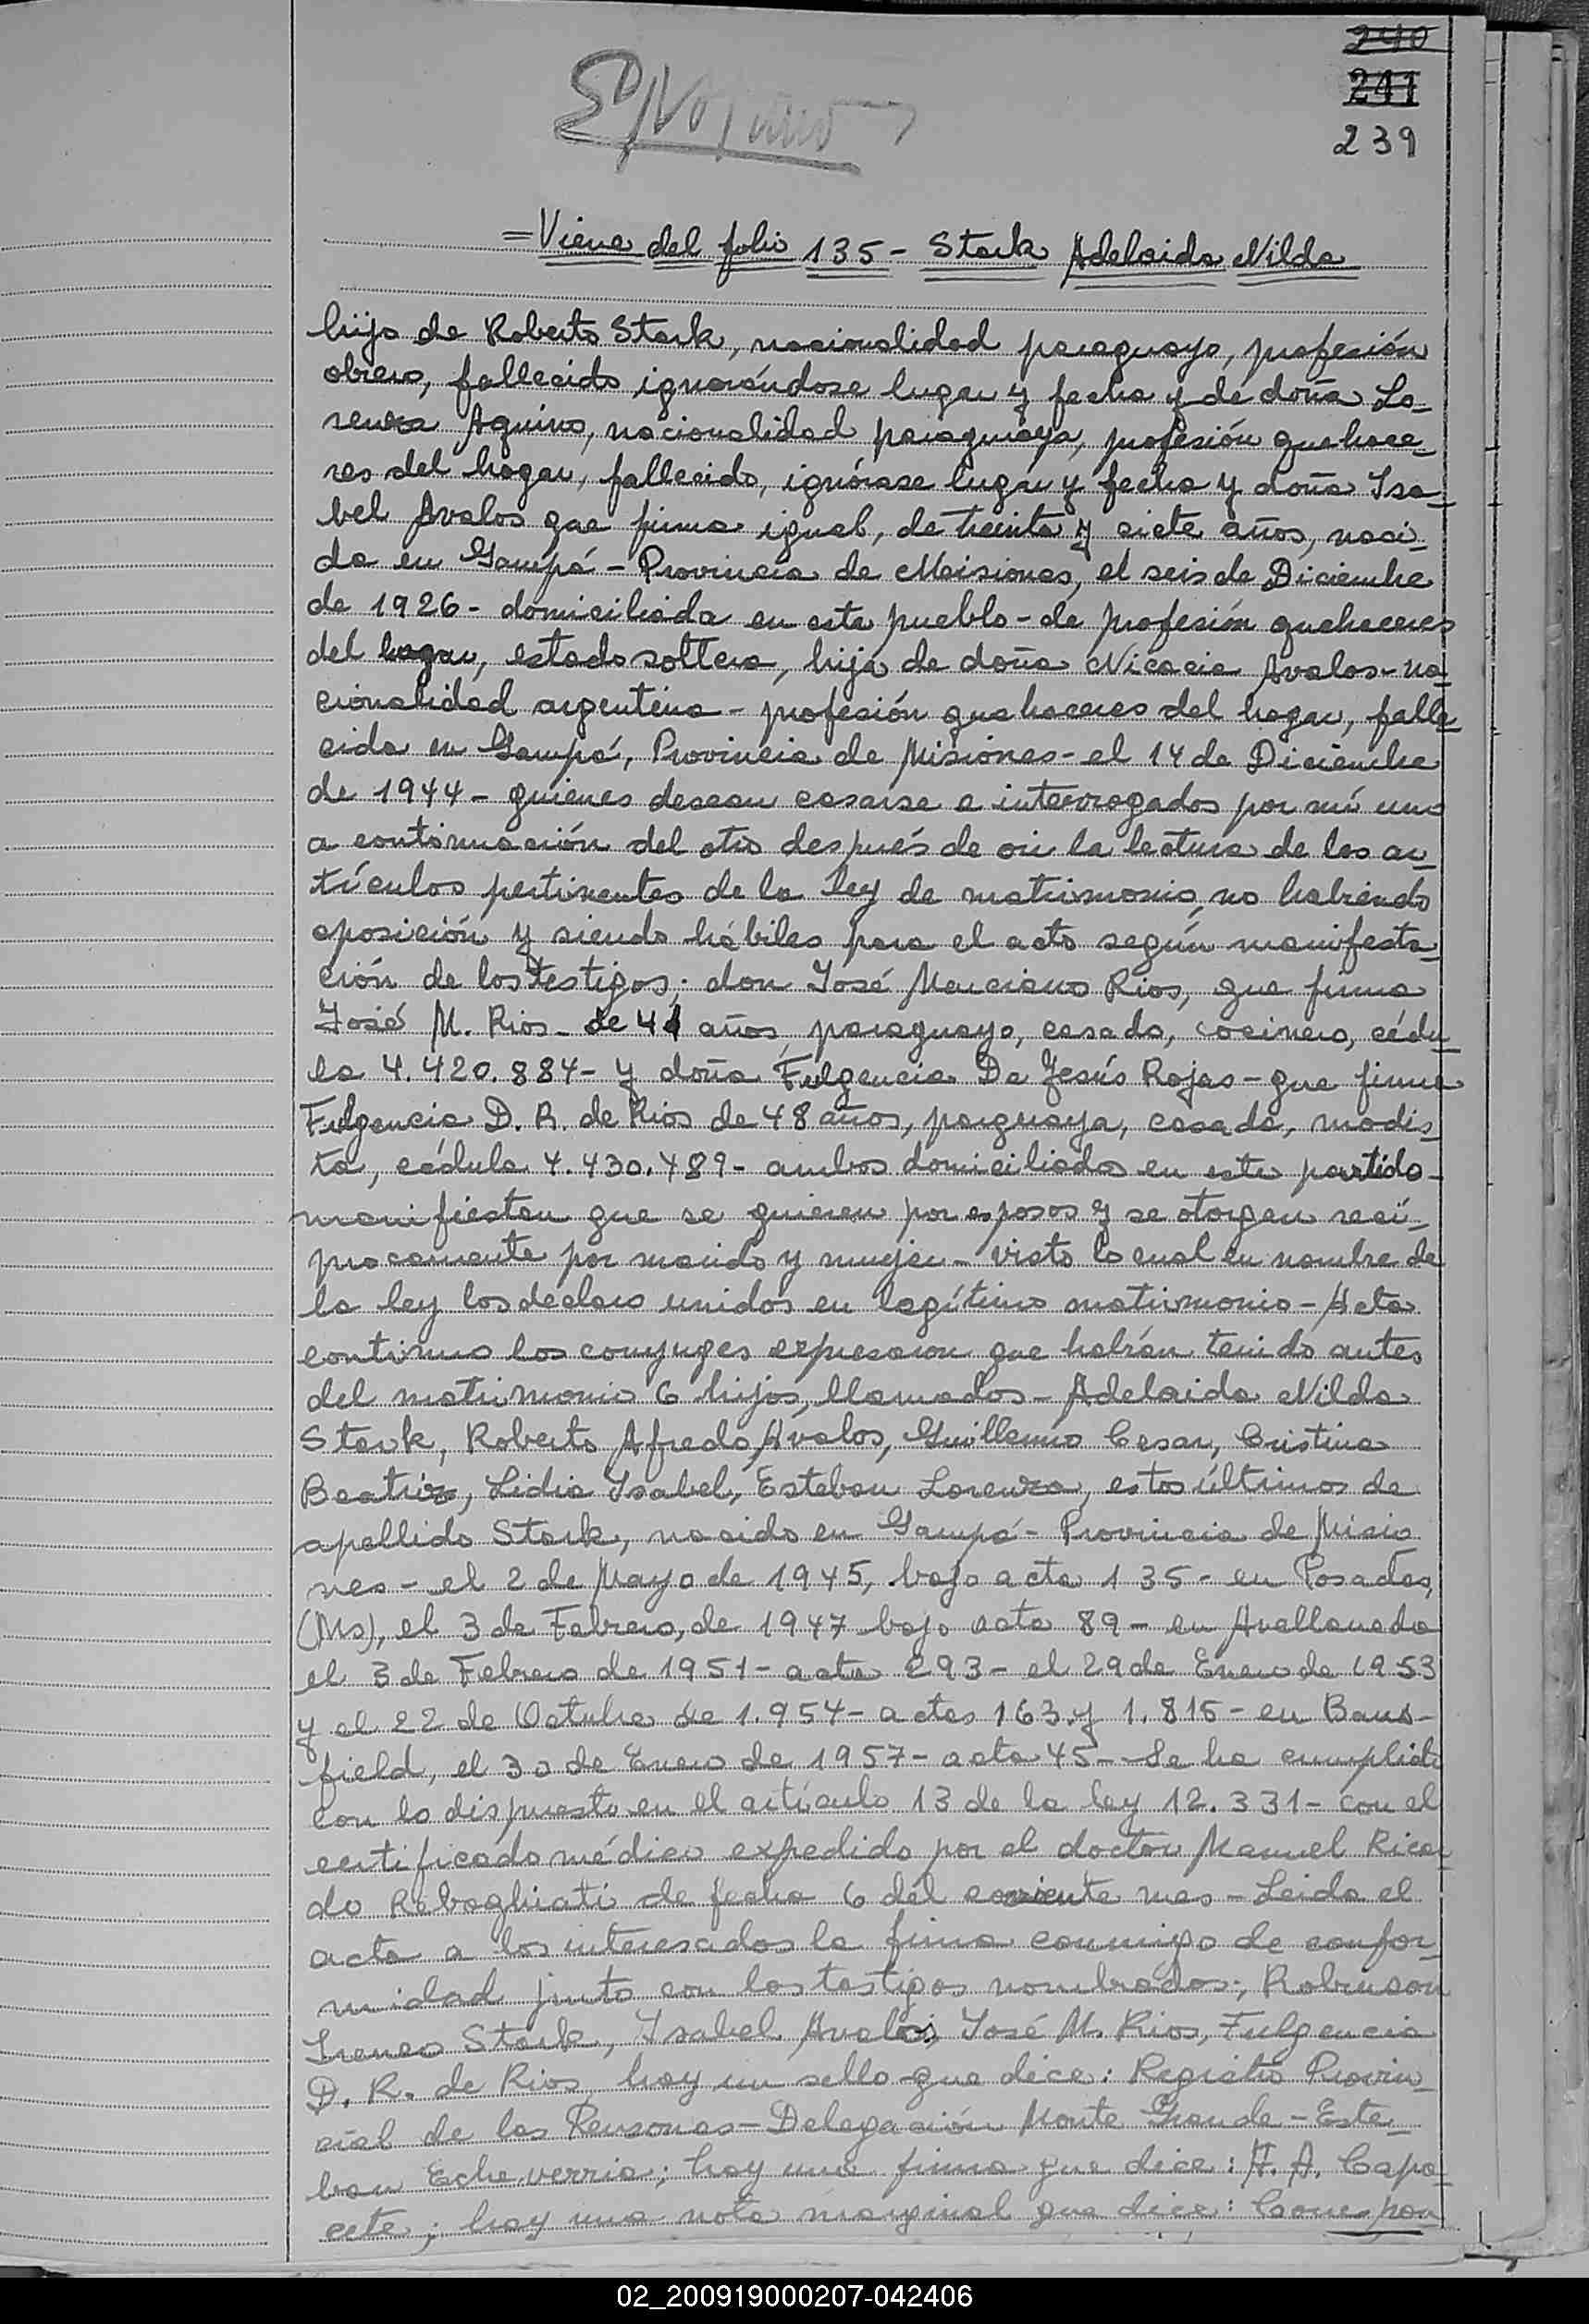 240
241
239
=Viene del folio 135- Stark Adelaida Nilda
hijo de Roberto Stark, nacionalidad paraguayo, profesión
obrero, fallecido ignorándose lugar y fecha y de doña Lo-
renza Aquino, nacionalidad paraguaya, profesión quehace-
res del hogar, fallecida, ignórase lugar y fecha y doña Isa-
bel Avalos que firma igual, de treinta y siete años, naci-
da en Garupá - Provincia de Misiones, el seis de Diciembre
de 1926 - domiciliada en este pueblo - de profesión quehaceres
del hogar, estado soltera, hija de doña Nicacia Avalos - na-
cionalidad argentina - profesión quehaceres del hogar, falle-
cida en Garupá, Provincia de Misiones - el 14 de Diciembre
de 1944 - quienes desean casarse e interrogados por mí uno
a continuación del otro después de oir la lectura de los ar-
tículos pertinentes de la ley de matrimonio, no habiendo
oposición y siendo hábiles para el acto según manifesta-
ción de los testigos; don José Marciano Rios, que firma
José M. Rios - de 41 años, paraguayo, casado, cocinero, cédu-
la 4.420.884 - y doña Fulgencia De Jesús Rojas - que firma
Fulgencia D. R. de Rios de 48 años, parguaya, casada, modis-
ta, cédula 4.430.489 - ambos domiciliados en este partido -
manifiestan que se quieren por esposos y se otorgan recí-
procamente por marido y mujer - visto lo cual en nombre de
la ley los declaro unidos en legítimo matrimonio - Acto
continuo los conyuges expresaron que habían tenido antes
del matrimonio 6 hijos, llamados - Adelaida Nilda
Stark, Roberto Afredo Avalos, Guillermo Cesar, Cristina
Beatriz, Lidia Isabel, Esteban Lorenzo, estos últimos de
apellido Stark, nacido en Garupá - Provincia de Misio
nes - el 2 de Mayo de 1945, bajo acta 135 - en Posadas,
(Ms), el 3 de Febrero, de 1947 bajo acta 89 - en Avellaneda
el 3 de Febrero de 1951 - acta 293 - el 29 de Enero de 1953
y el 22 de Octubre de 1.954 - actas 163 y 1.815 - en Bans-
field, el 30 de Enero de 1957 - acta 45 - Se ha cumplido
con lo dispuesto en el artículo 13 de la ley 12.331 - con el
certificado médico expedido por el doctor Manuel Ricar
do Reboghiati de fecha 6 del corriente mes - Leida el
acta a los interesados la firma conmigo de confor-
midad junto con los testigos nombrados; Robinson
Ireneo Stark, Isabel Avalos, José M. Rios, Fulgencia
D. R. de Rios, hay un sello que dice: Registro Provin-
cial de las Personas - Delegación Monte Grande - Este-
ban Echeverria; hay una firma que dice: H. A. Capo-
cete; hay una nota marginal que dice: Correspon
02_200919000207-042406